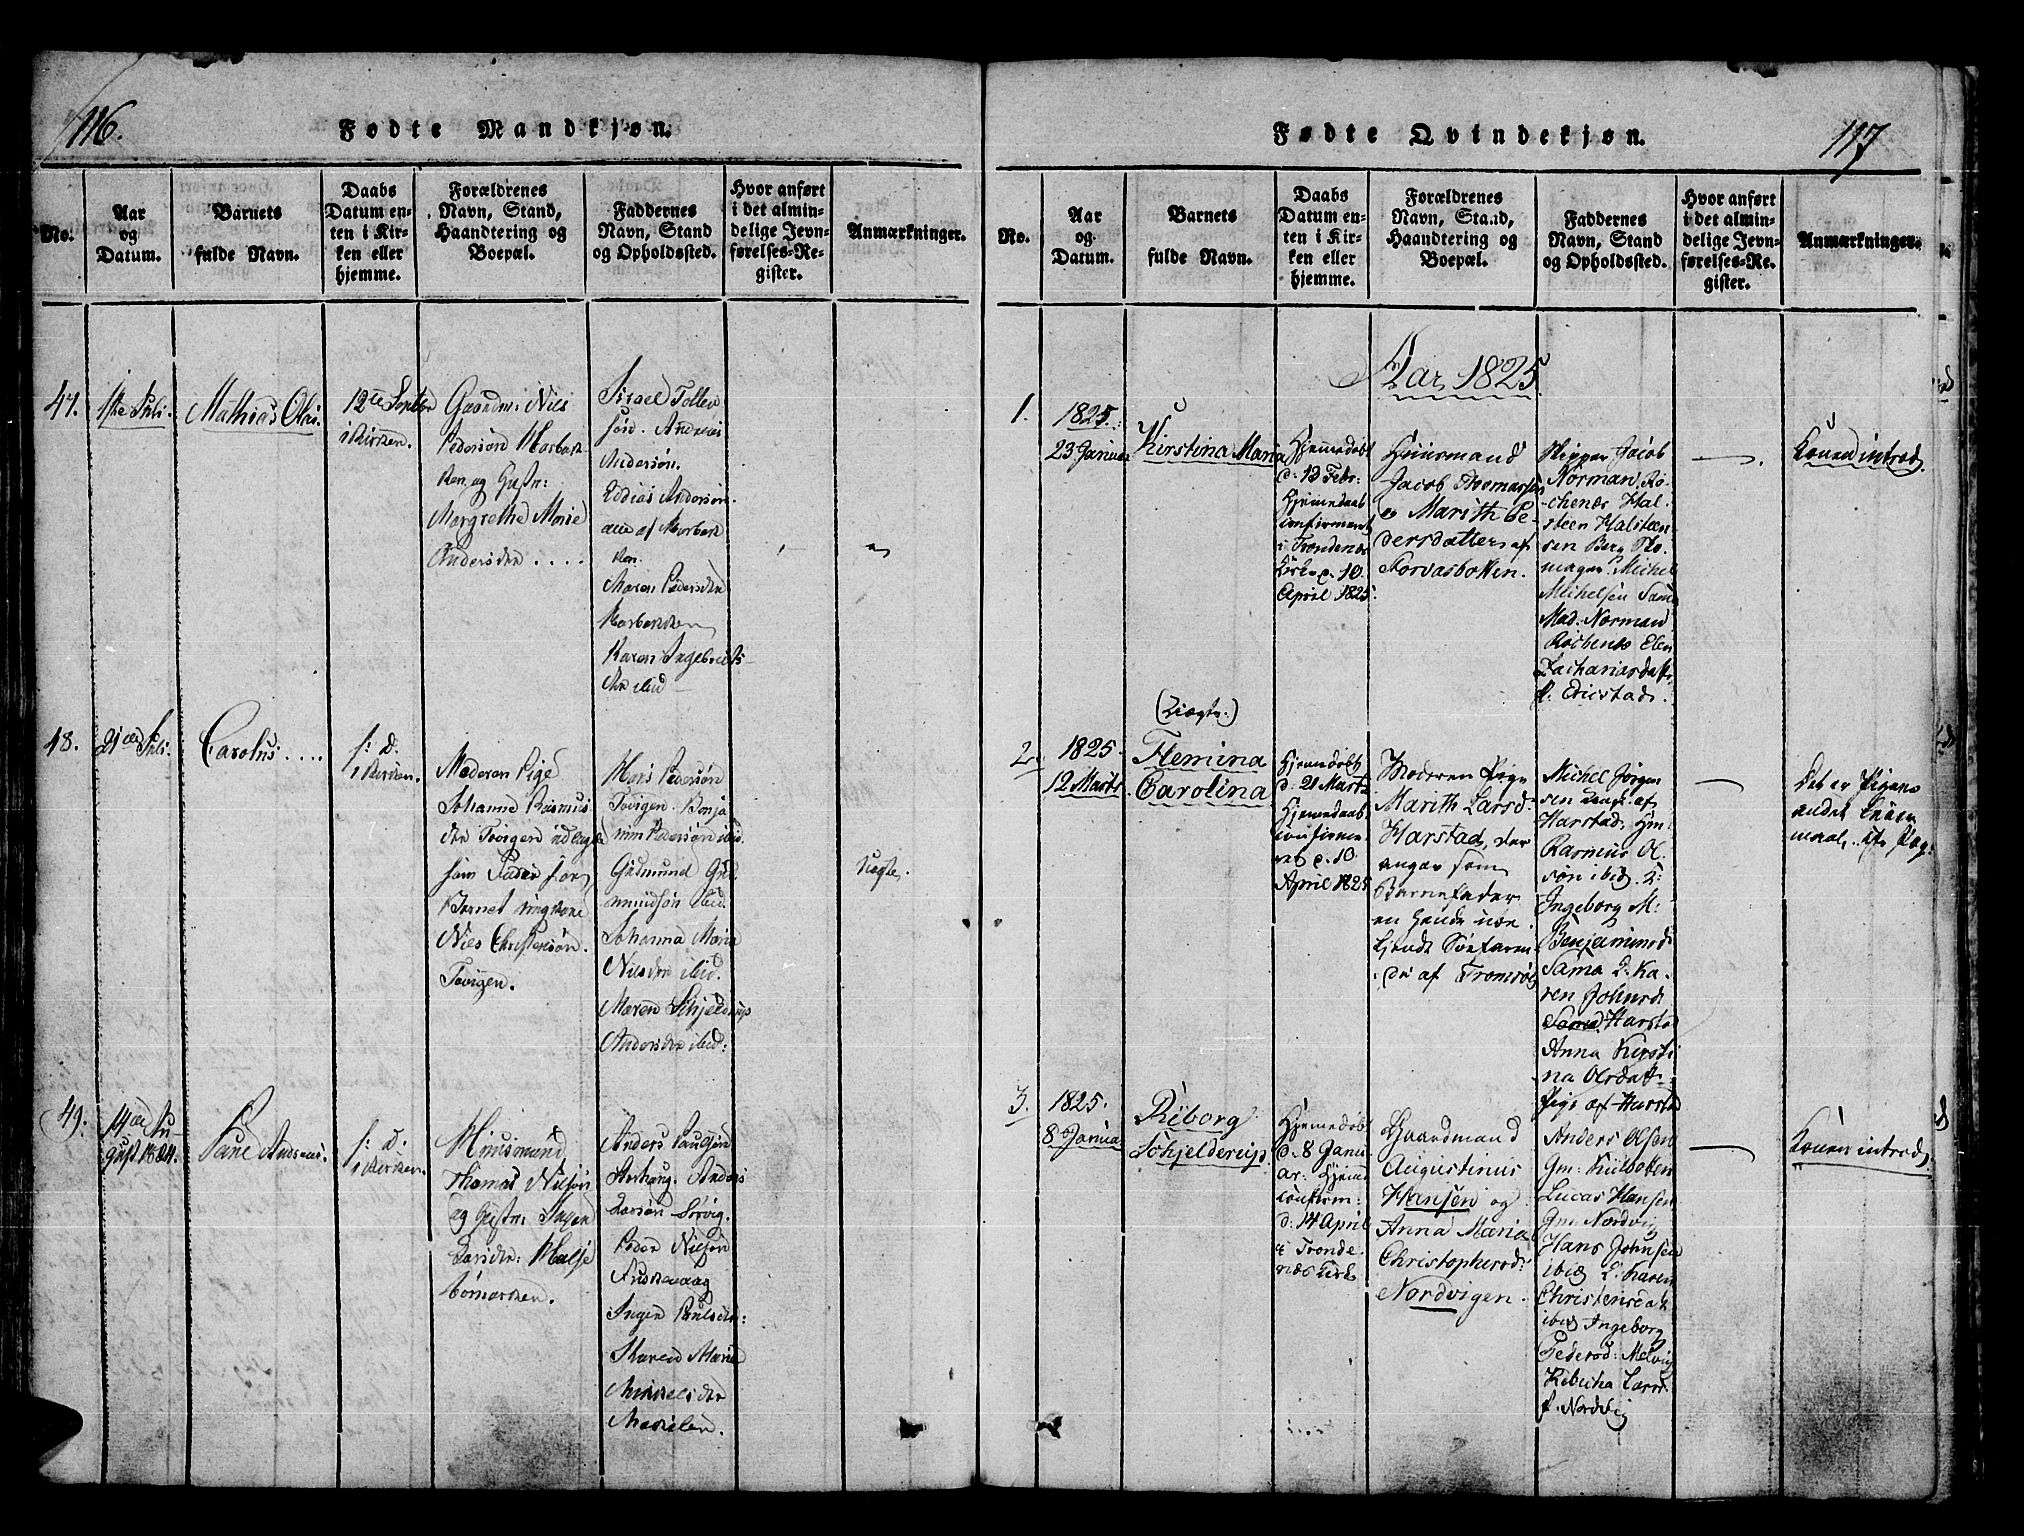 116.
Fødte Mandkjøn.
No.
Aar
og
Datum.
Barnets
fulde Navn.
Daabs
Datum en-
ten i Kir-
ken eller
hjemme.
Forældrenes
Navn, Stand,
Haandtering og
Boepæl.
Faddernes
Navn, Stand
og Opholdssted.
Hvor anført
i det almin-
delige Jevn-
førelses-Re-
gister.
Anmærkninger.
47.
1ste Juli.
Mathias Olai.
12te Septbr
i Kirken.
Gaardm: Nils
Pedersøn
ken og
Margrethe Marie
Andersdtr ....
Israel Tollev
søn. Andreas
Andersøn.
Andersøn.
alle af
ken.
Maren Pedersdtr
Karen Ingebrigts-
dtr ibid
48.
21de Juli.
Carolus ....
s: D.
i Kirken.
Moderen Pige
Johanne Rasmus
dtr Tovigen udlagde
som Fader for
Barnet ungkarl
Niels Christensøn.
Tovigen.
Hans Pedersøn
Tovigen. Benja
min Pedersøn ibid.
Gudmund Gud
mundsøn ibid.
Johanna Maria
Nilsdtr ibid.
Maren Schjelderup
Andersdtr ibid:
Uægte.
49.
14de Au-
gust 1824.
Andreas.
s: D.
i Kirken.
Huusmand
Thomas Nilsøn
og Inger
Larsdtr:
Anders
Aarhaug. Anders
Larsøn Sørvig.
Peder Nilsøn
Inger
Karen Maria
Mikkelsdtr
117
Fødte Qvindekjøn.
No.
Aar
og
Datum.
Barnets
fulde Navn.
Daabs
Datum en-
ten i Kir-
ken eller
hjemme.
Forældrenes
Navn, Stand,
Haandtering og
Boepæl.
Faddernes
Navn, Stand
og Opholdssted.
Hvor anført
i det almin-
delige Jevn-
førelses-Re-
gister.
Anmærkninger.
Aar 1825.
1.
1825.
23 Januar
Kirstina Maria
Hjemmedøbt
d: 13 Febr:
Hjemmedaab
confirmeret
i Trondenæs
Kirke d. 10
April 1825.
Huusmand
Jacob
og Marith Pe-
dersdatter af
Storvasbotten.
Skipper Jacob
Norman, Rø-
ckenes Hal-
steen Halsteen-
sen Berg Sko-
mager Michel
Michelsen Sama
Mad: Norman
Røckenes Elen
Zachariasdatt:
p. Ericstad.
—.
Konen introd.
2.
1825.
12 Marts
(Uægte.)
Flemina
Carolina
Hjemmedøbt
d. 21 Marts
Hjemmedaab
confirme-
ret d. 10
April 1825
Moderen Pige
Marith Larsd:
Harstad, der
angav som
Barnefader
en hende ube-
kjendt Søefaren-
de af Tromsøe
Michel Jørgen
sen Ungk. af
Harstad, Hm
Rasmus Ol-
søn ibid. K:
Ingeborg M:
Benjaminsd:
Sama K. Ka-
ren Johnsd:
Sama Harstad
Anna Kirsti-
na Olsdatt:
Pige af Harstad
—
Det er Pigens
andet Leier-
maal,
3.
1825.
8 Janua
Riborg
Schjelderup.
Hjemmedøbt
d. 8 Janu
ar. Hjemd
confirm:
d: 14 April
i Tronde-
næs Kirke
Gaardmand
Augustinus
Hansen og
Anna Maria
Christophersd:
Nordvigen.
Anders Olsen
Gm: Kulbotten
Lucas Hansen
Gm: Nordvig
Hans Johnsen
ibid K: Karen
Christensdat
ibid Ingeborg
Pedersd: Melvig
Rebecha Larsd:
p. Nordvig
—
Konen introd.